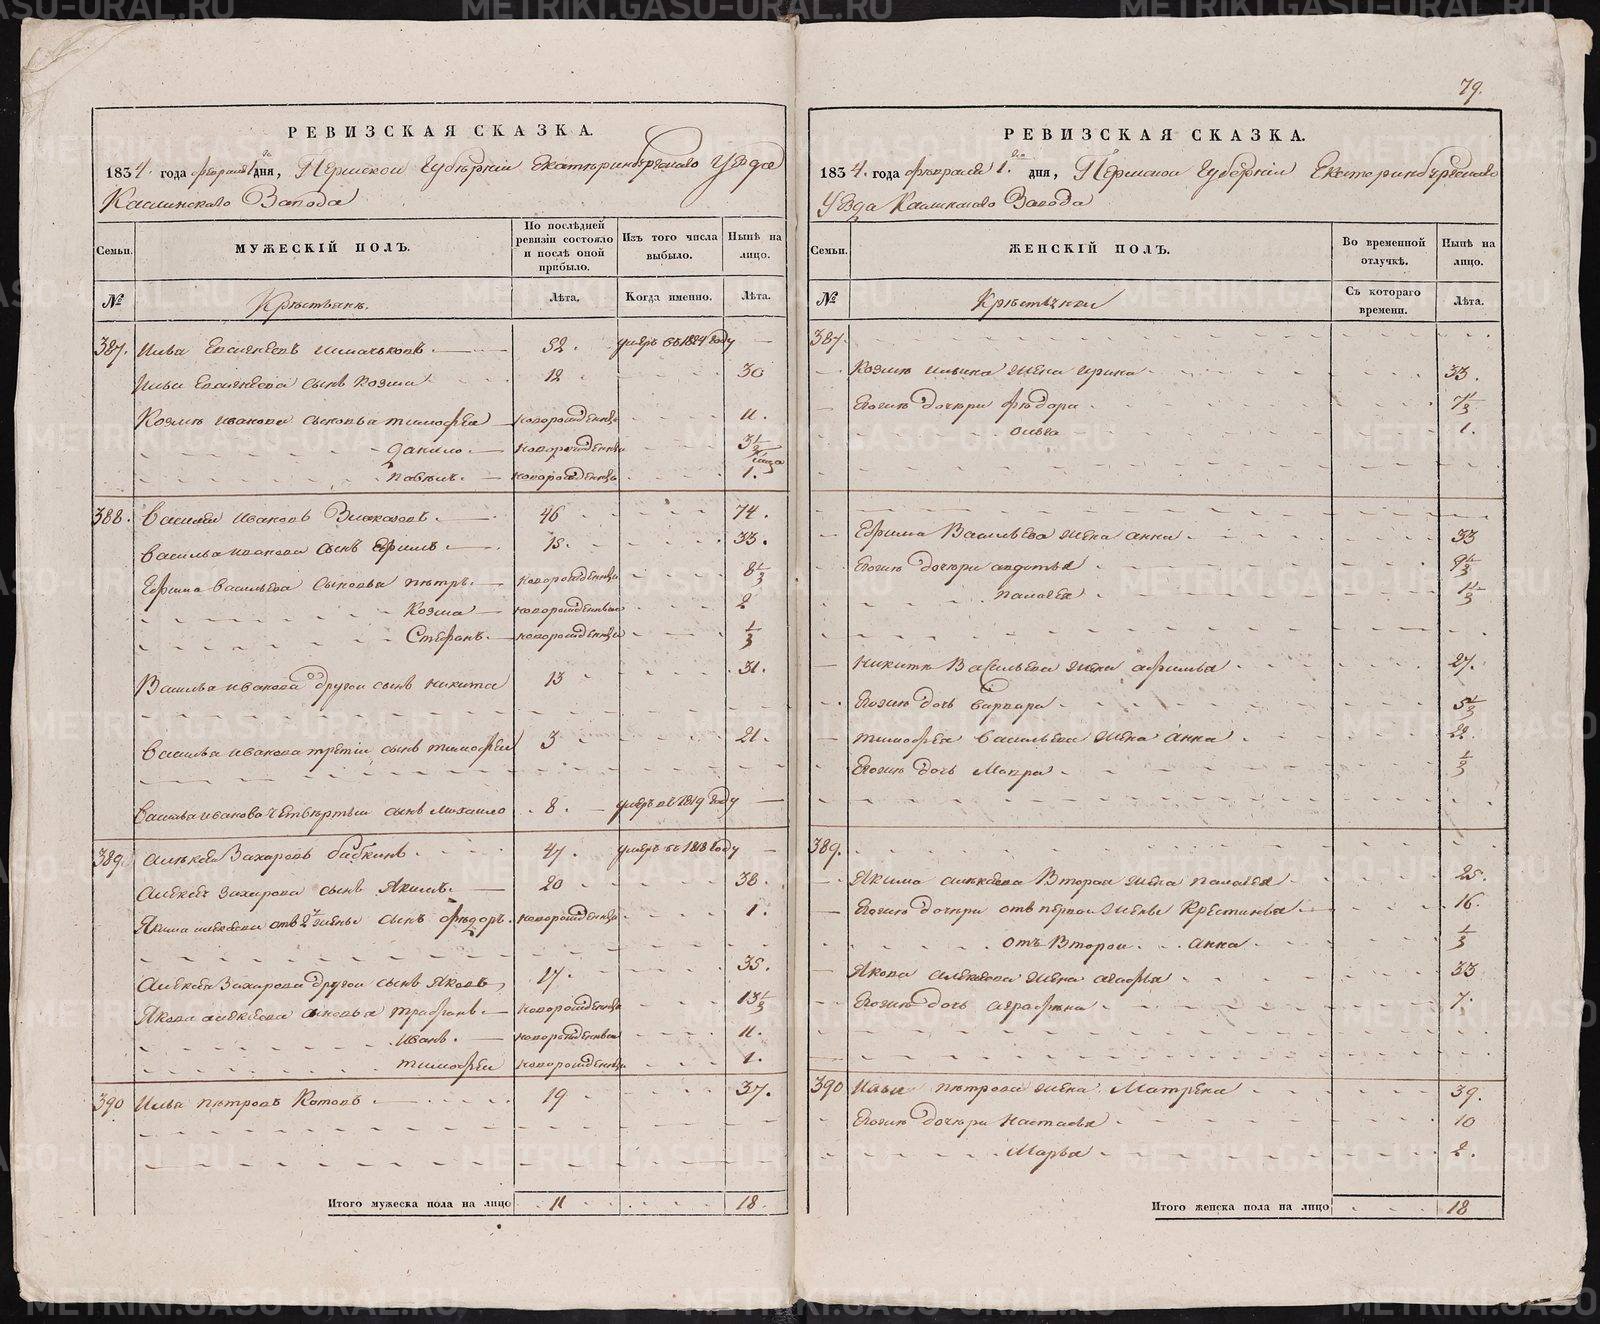 РЕВИЗСКАЯ СКАЗКА.
1834. года февраля 1 го дня, Пермской Губерніи Екатеринбургскаго Уезда
Каслинскаго Завода
Семьи.
МУЖЕСКІЙ ПОЛЪ.
По послѣдней ревизіи состояло и послѣ оной прибыло.
Изъ того числа выбыло.
Нынѣ на лицо.
№
Крестьянъ.
Лѣта.
Когда именно.
Лѣта.
387. Илья Евсигнеевъ 52. умеръ въ 1824 году
Ильи Евсигнеева сынъ Козма 12 30
Козмы Иванова сыновья Тимофей новорожденъ 11.
Данило новорожденъ 3 1/2
Павелъ новорожденъ 1.
388. Василей Ивановъ 46 74.
Василья Иванова сынъ Ефимъ 15. 33.
Ефима Васильева сыновья Петръ новорожденъ 8 1/3
Козма новорожденъ 2
Стефанъ новорожденъ 1/3
Василья Иванова другой сынъ Никита 13 31.
Василья Иванова третій сынъ Тимофей 3 21.
Василья Иванова четвертый сынъ Михайло 8. умеръ въ 1819 году
389. Алексей Захаровъ Бабкинъ 47. умеръ въ 1818 году
Алексея Захарова сынъ Якимъ 20 38.
Якима Алексеева отъ 2й жены сынъ Федоръ новорожденъ 1.
Алексея Захарова другой сынъ Яковъ 17. 35.
Якова Алексеева сыновья Трофимъ новорожденъ 13 1/2
Иванъ. новорожденъ 11.
Тимофей новорожденъ 1.
390 Илья Петровъ Котовъ 19 37.
Итого мужеска пола на лицо 11 18.
79.
РЕВИЗСКАЯ СКАЗКА.
1834. года февраля 1. го дня, Пермской Губерніи Екатеринбургскаго
Уезда Каслинскаго Завода
Семьи.
ЖЕНСКІЙ ПОЛЪ.
Во временной отлучкѣ.
Нынѣ на лицо.
№
Крестьянки
Съ котораго времени.
Лѣта.
387.
Козмы Ильина жена Ирина 33.
Егожъ дочери Федора 7 1/3
Ольга 1.
Ефима Васильева жена Анна 33
Егожъ дочери Авдотья 9 1/3
Палагея 1 1/3
Никиты Васильева жена Афимья 27.
Егожъ дочь Варвара 5 1/3
Тимофея Васильева жена Анна 22.
Егожъ дочь Мавра 1/3
389.
Якима Алексеева вторая жена Палагея 25.
Егожъ дочери отъ первой жены Крестинья 16.
отъ Второй Анна 1/3
Якова Алексеева жена Агафья 33
Егожъ дочь Аграфена 7.
390 Ильи Петрова жена Матрена 39.
Егожъ дочери Настасья 10
Марья 2.
Итого женска пола на лицо 18
METRIKI.GASO-URAL.RU